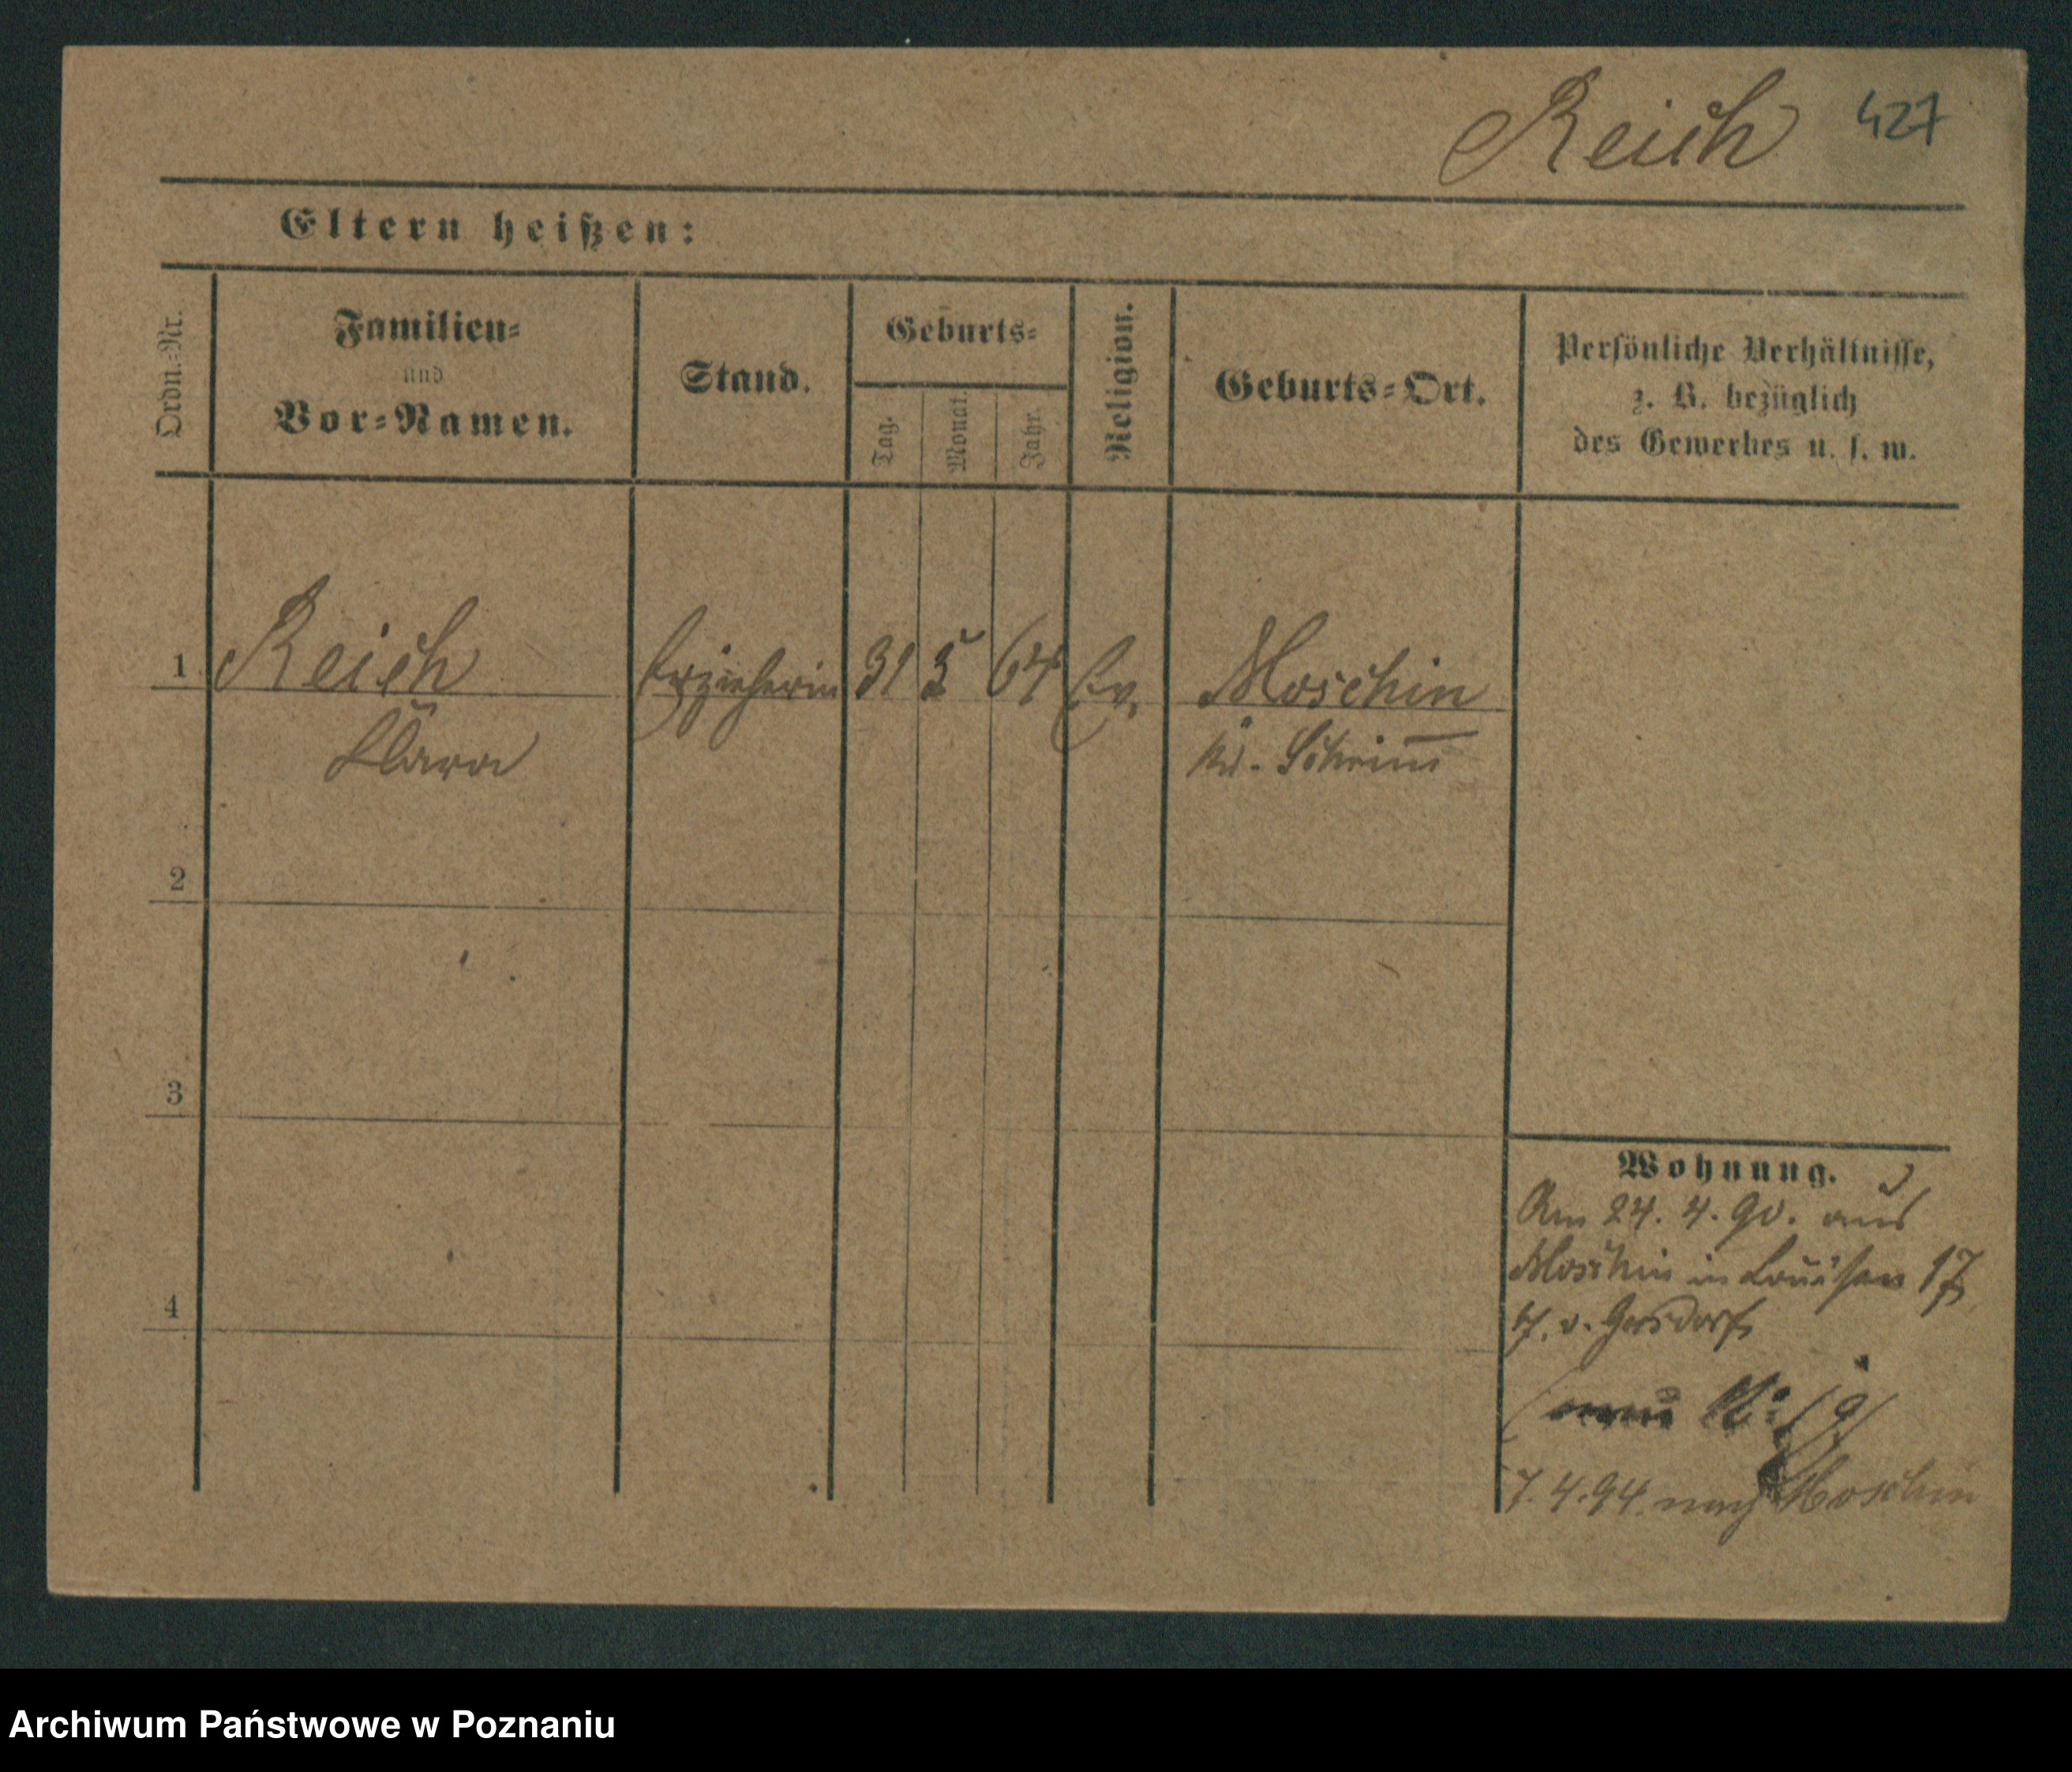 Reich 427
Eltern heißen:
Ordn.=Nr.
Familien=
und
Vor=Namen.
Stand.
Geburts=
Tag.
Monat.
Jahr.
Religion.
Geburts=Ort.
Persönliche Verhältnisse,
z. B. bezüglich
des Gewerbes u. s. w.
1 Reich Erzieherin 31 5 64 Ev. Moschin
Klara Kr. Schrimm
2
3
4
Wohnung.
Am 24. 4. 90. aus
Moschin in Louisen 17
b. v. Gersdorf
19
7. 4. 94. nach Moschin
Archiwum Państwowe w Poznaniu